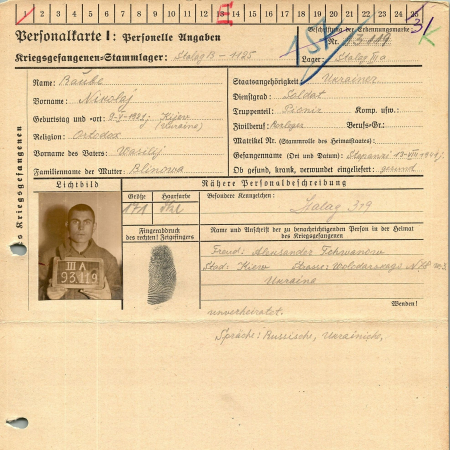 1 2 3 4 5 6 7 8 9 10 11 12 13 14 15 16 17 18 19 20 21 22 23 24 25
Personalkarte I: Personelle Angaben
Beschriftung der Erkennungsmarke
Nr. 93119
Kriegsgefangenen-Stammlager: Stalag
Lager: Stalag III a
Name:
Staatsangehörigkeit: Ukrainer
Vorname: Nikolaj
Dienstgrad: Soldat
Geburtstag und -ort: Kijow
Truppenteil: Pionir Komp. usw.:
Zivilberuf: Berufs-Gr.:
Religion: Ortodox
Matrikel Nr. (Stammrolle des Heimatstaates):
Vorname des Vaters: Wasilij
Gefangennahme (Ort und Datum):
Familienname der Mutter: Blinowa
Ob gesund, krank, verwundet eingeliefert: gesund
des Kriegsgefangenen
Lichtbild
Nähere Personalbeschreibung
Größe
Haarfarbe
Besondere Kennzeichen:
171
Stalag 319
Fingerabdruck
des rechten! Zeigefingers
Name und Anschrift der zu benachrichtigenden Person in der Heimat
des Kriegsgefangenen
III A
93119
Freund: Aleksander
Stad: Kiew
Ukraina
Wenden!
unverheiratet.
Sprache: Russisch,